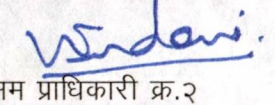 नम प्राधिकारी क्र.२